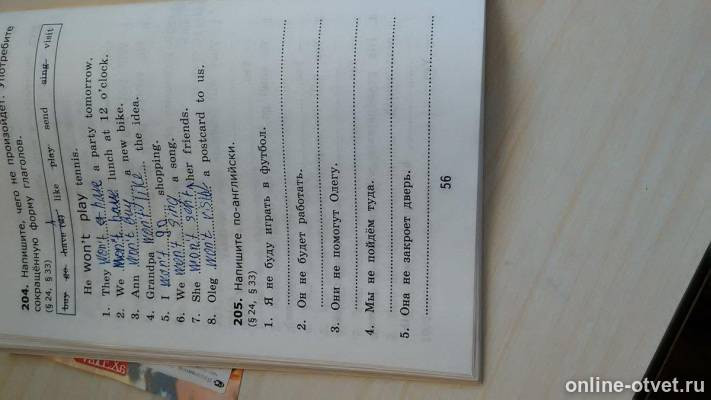 204. Напишите, чего не произойдёт. Употребите
сокращённую форму глаголов.
(§ 24, § 33)
buy go have (2) like play send sing visit
He won't play tennis.
1. They won't have a party tomorrow.
2. We won't have lunch at 12 o'clock.
3. Ann won't buy a new bike.
4. Grandpa won't like the idea.
5. I won't go shopping.
6. We won't sing a song.
7. She won't her friends.
8. Oleg won't a postcard to us.
205. Напишите по-английски.
(§ 24, § 33)
1. Я не буду играть в футбол.
2. Он не будет работать.
3. Они не помогут Олегу.
4. Мы не пойдём туда.
5. Она не закроет дверь.
56
online-otvet.ru